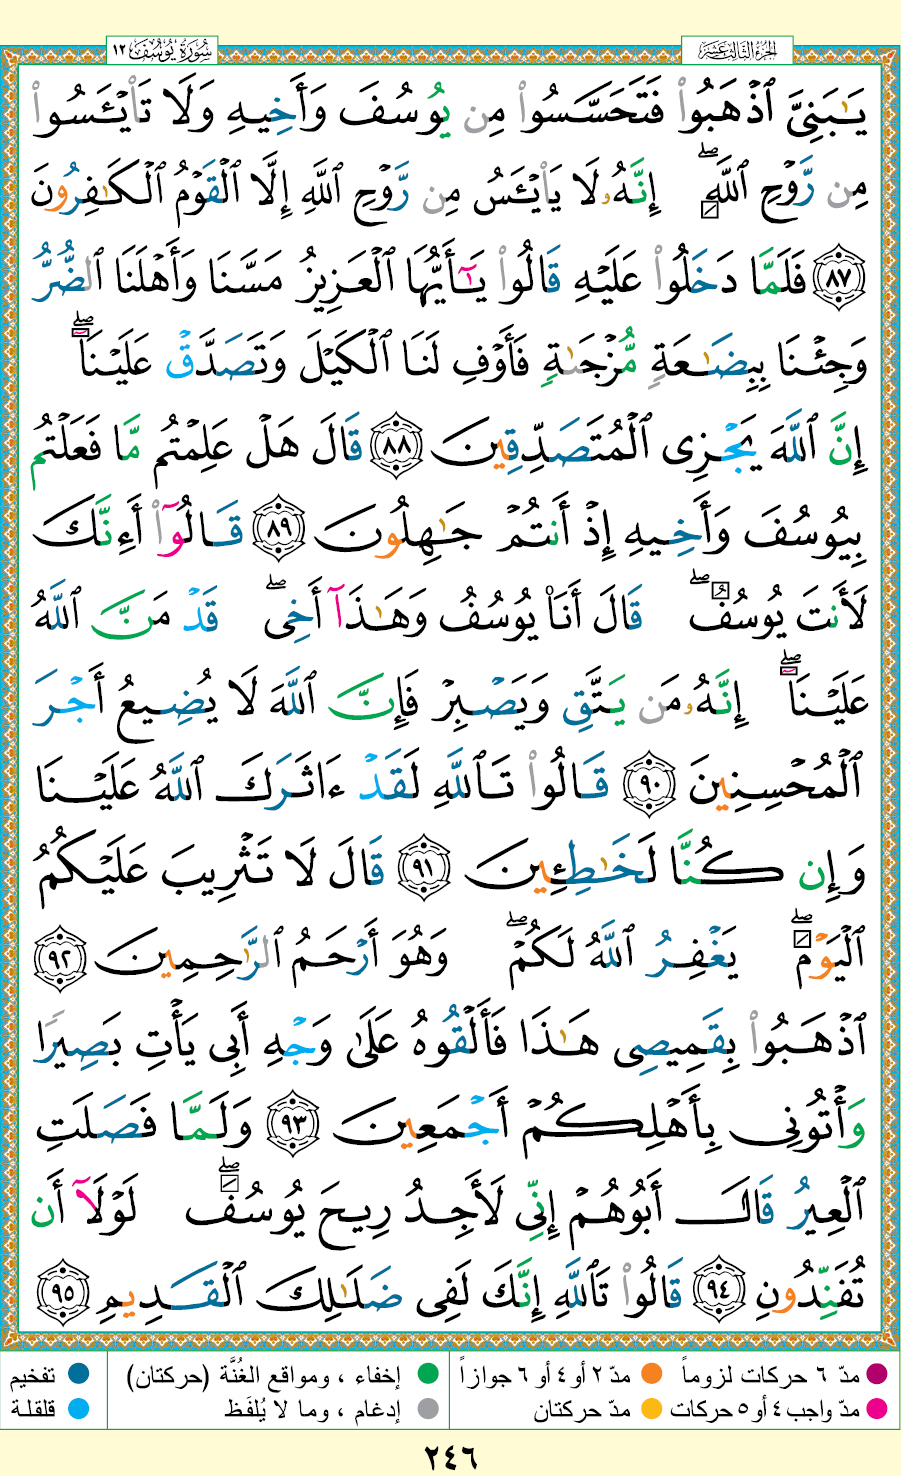 الجزء الثالث عشر
سُورَةُ يُوسُفَ ١٢
يَـٰبَنِىَّ ٱذْهَبُوا۟ فَتَحَسَّسُوا۟ مِن يُوسُفَ وَأَخِيهِ وَلَا تَا۟يْـَٔسُوا۟
مِن رَّوْحِ ٱللَّهِ ۖ إِنَّهُۥ لَا يَا۟يْـَٔسُ مِن رَّوْحِ ٱللَّهِ إِلَّا ٱلْقَوْمُ ٱلْكَـٰفِرُونَ
٨٧ فَلَمَّا دَخَلُوا۟ عَلَيْهِ قَالُوا۟ يَـٰٓأَيُّهَا ٱلْعَزِيزُ مَسَّنَا وَأَهْلَنَا ٱلضُّرُّ
وَجِئْنَا بِبِضَـٰعَةٍ مُّزْجَىٰةٍ فَأَوْفِ لَنَا ٱلْكَيْلَ وَتَصَدَّقْ عَلَيْنَآ ۖ
إِنَّ ٱللَّهَ يَجْزِى ٱلْمُتَصَدِّقِينَ ٨٨ قَالَ هَلْ عَلِمْتُم مَّا فَعَلْتُم
بِيُوسُفَ وَأَخِيهِ إِذْ أَنتُمْ جَـٰهِلُونَ ٨٩ قَالُوٓا۟ أَءِنَّكَ
لَأَنتَ يُوسُفُ ۖ قَالَ أَنَا۠ يُوسُفُ وَهَـٰذَآ أَخِى ۖ قَدْ مَنَّ ٱللَّهُ
عَلَيْنَآ ۖ إِنَّهُۥ مَن يَتَّقِ وَيَصْبِرْ فَإِنَّ ٱللَّهَ لَا يُضِيعُ أَجْرَ
ٱلْمُحْسِنِينَ ٩٠ قَالُوا۟ تَٱللَّهِ لَقَدْ ءَاثَرَكَ ٱللَّهُ عَلَيْنَا
وَإِن كُنَّا لَخَـٰطِـِٔينَ ٩١ قَالَ لَا تَثْرِيبَ عَلَيْكُمُ
ٱلْيَوْمَ ۖ يَغْفِرُ ٱللَّهُ لَكُمْ ۖ وَهُوَ أَرْحَمُ ٱلرَّٰحِمِينَ ٩٢
ٱذْهَبُوا۟ بِقَمِيصِى هَـٰذَا فَأَلْقُوهُ عَلَىٰ وَجْهِ أَبِى يَأْتِ بَصِيرًا
وَأْتُونِى بِأَهْلِكُمْ أَجْمَعِينَ ٩٣ وَلَمَّا فَصَلَتِ
ٱلْعِيرُ قَالَ أَبُوهُمْ إِنِّى لَأَجِدُ رِيحَ يُوسُفَ ۖ لَوْلَآ أَن
تُفَنِّدُونِ ٩٤ قَالُوا۟ تَٱللَّهِ إِنَّكَ لَفِى ضَلَـٰلِكَ ٱلْقَدِيمِ ٩٥
مدّ ٦ حركات لزوماً مدّ ٢ أو ٤ أو ٦ جوازاً إخفاء ، ومواقع الغُنَّة (حركتان) تفخيم
مدّ واجب ٤ أو ٥ حركات مدّ حركتان إدغام ، وما لا يُلفَظ قلقلة
٢٤٦